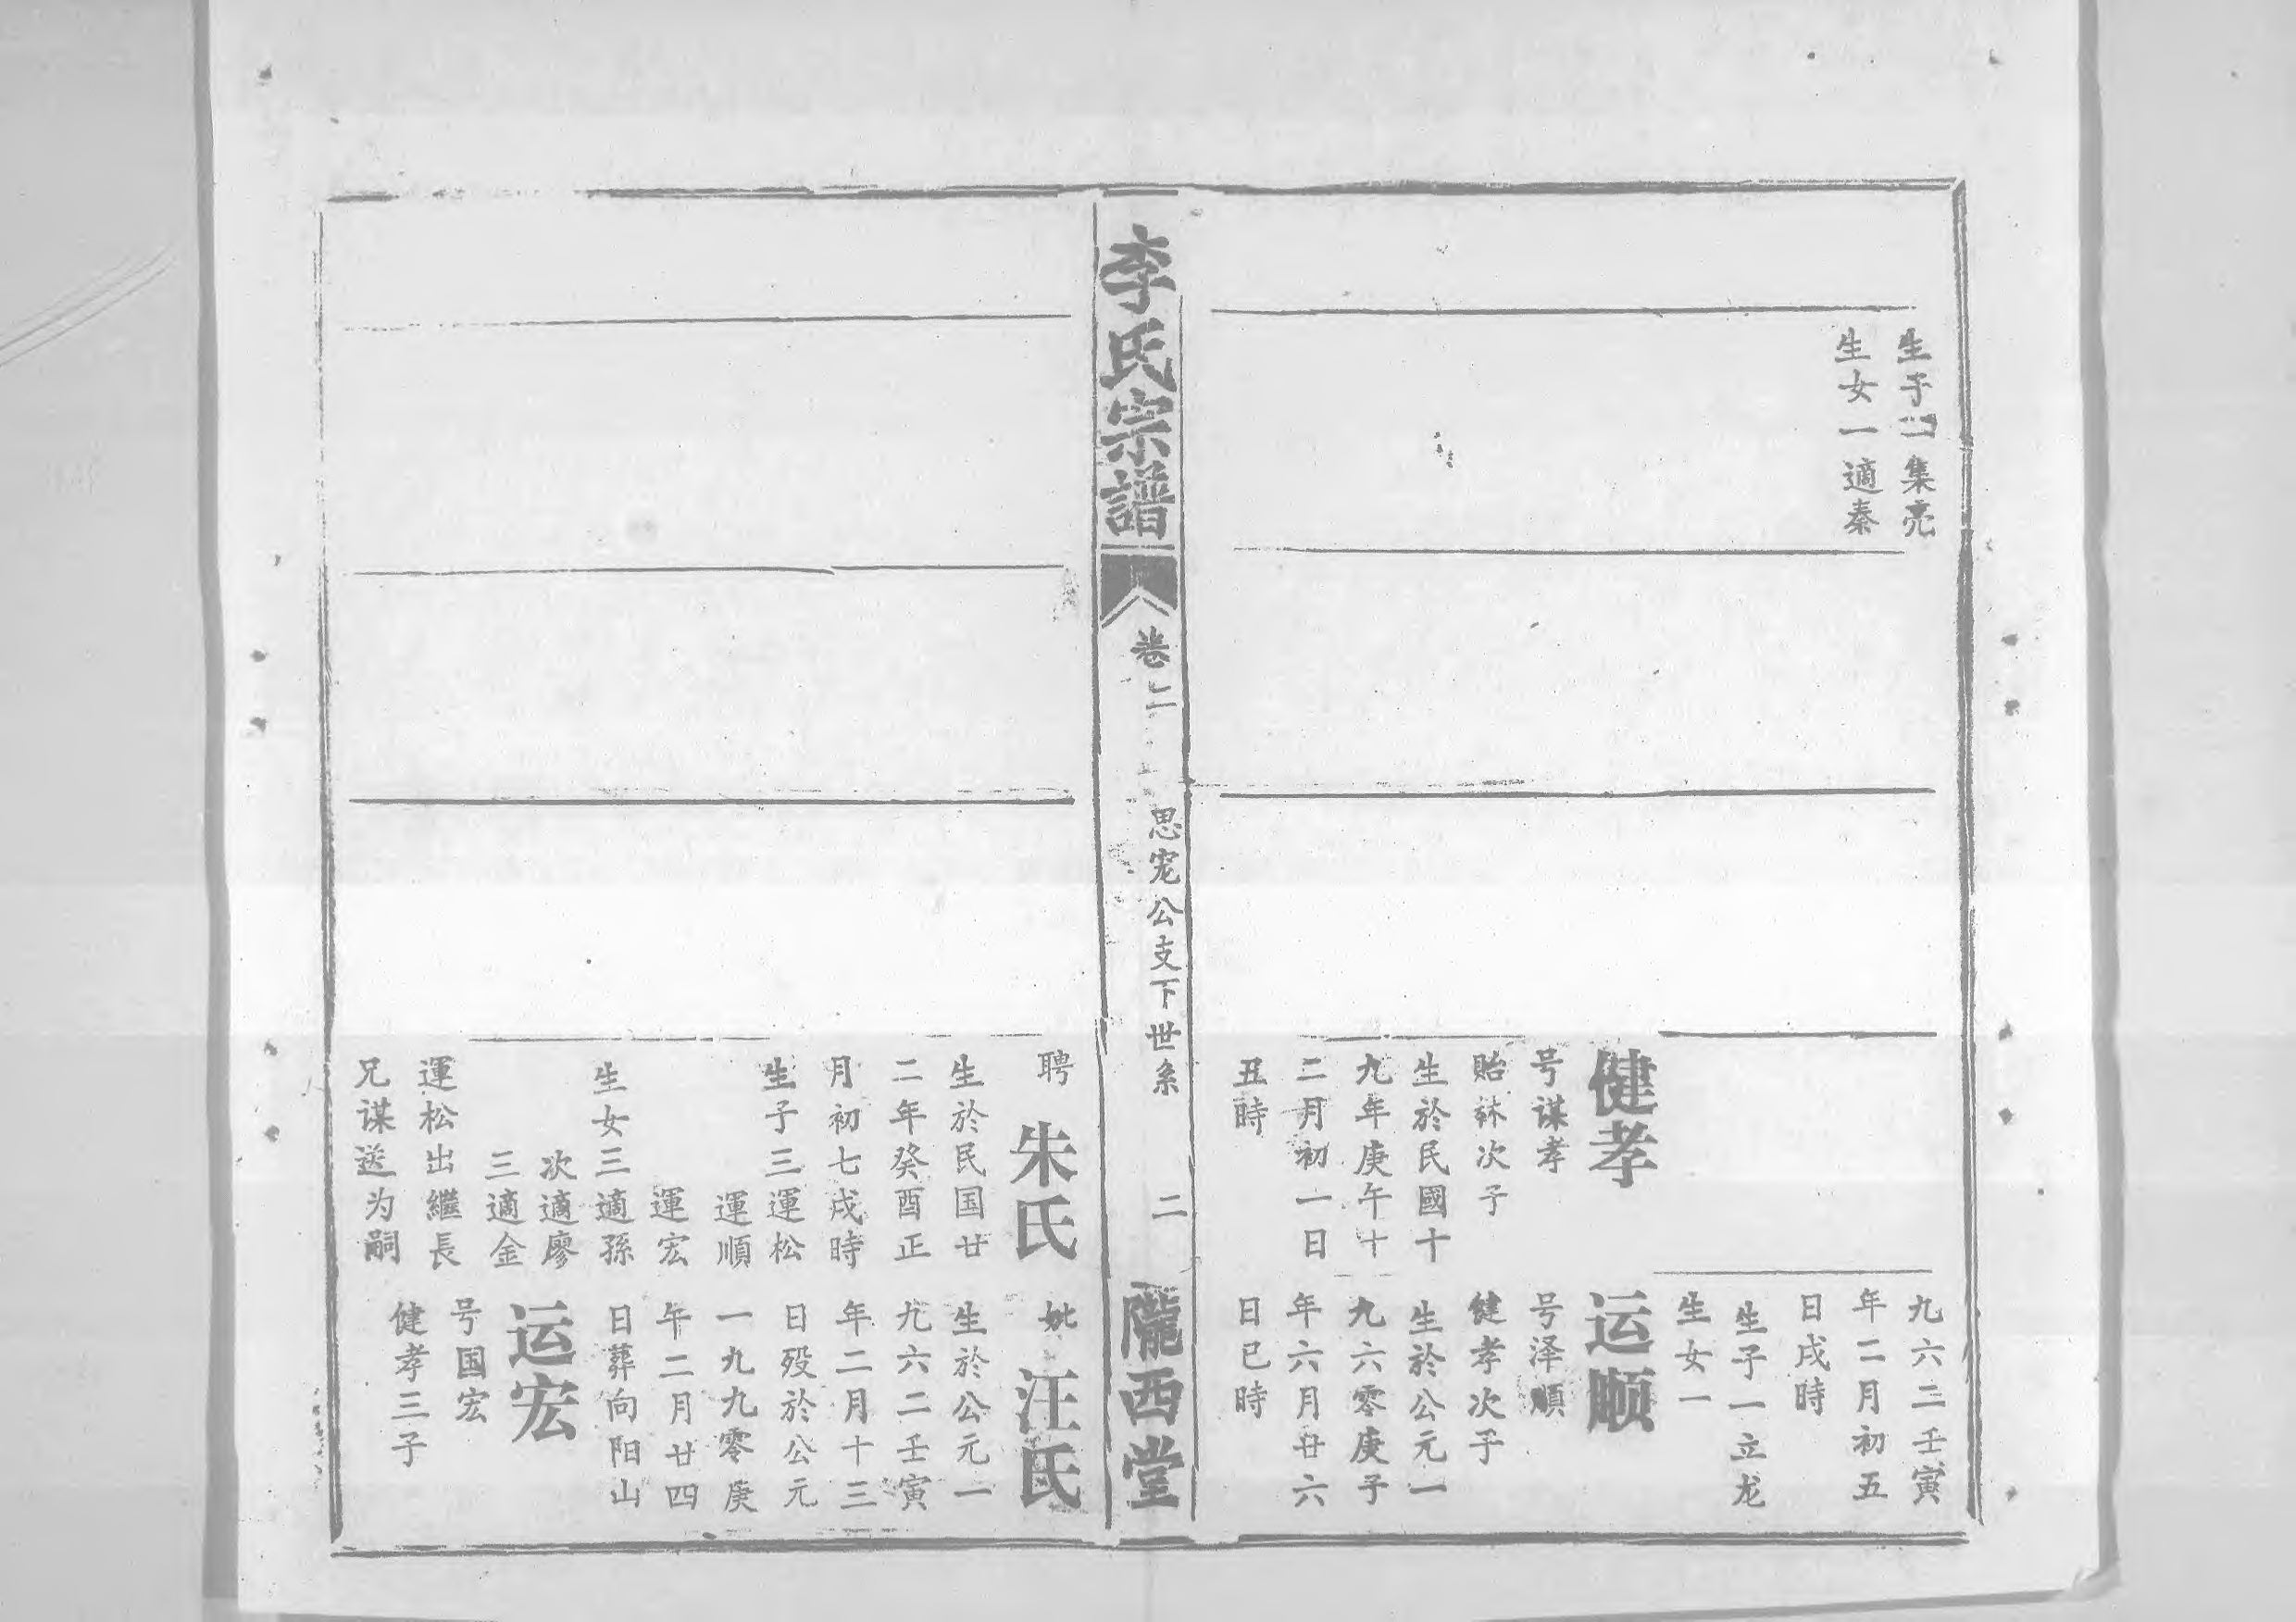 生子一集亮
生女一適秦
健孝
号谋孝
貽秝次子
生於民國十
九年庚午十
二月初一日
丑時
九六二壬寅
年二月初五
日戌時
生子一立龙
生女一
运顺
号泽順
健孝次子
生於公元一
九六零庚子
年六月廿六
日巳時
李氏宗譜
卷二
思宠公支下世系
二
隴西堂
聘朱氏
生於民国廿
二年癸酉正
月初七戌時
生子三運松
運順
運宏
生女三適孫
次適廖
三適金
運松出繼長
兄谋送为嗣
妣汪氏
生於公元一
九六二壬寅
年二月十三
日殁於公元
一九九零庚
午二月廿四
日葬向阳山
运宏
号国宏
健孝三子